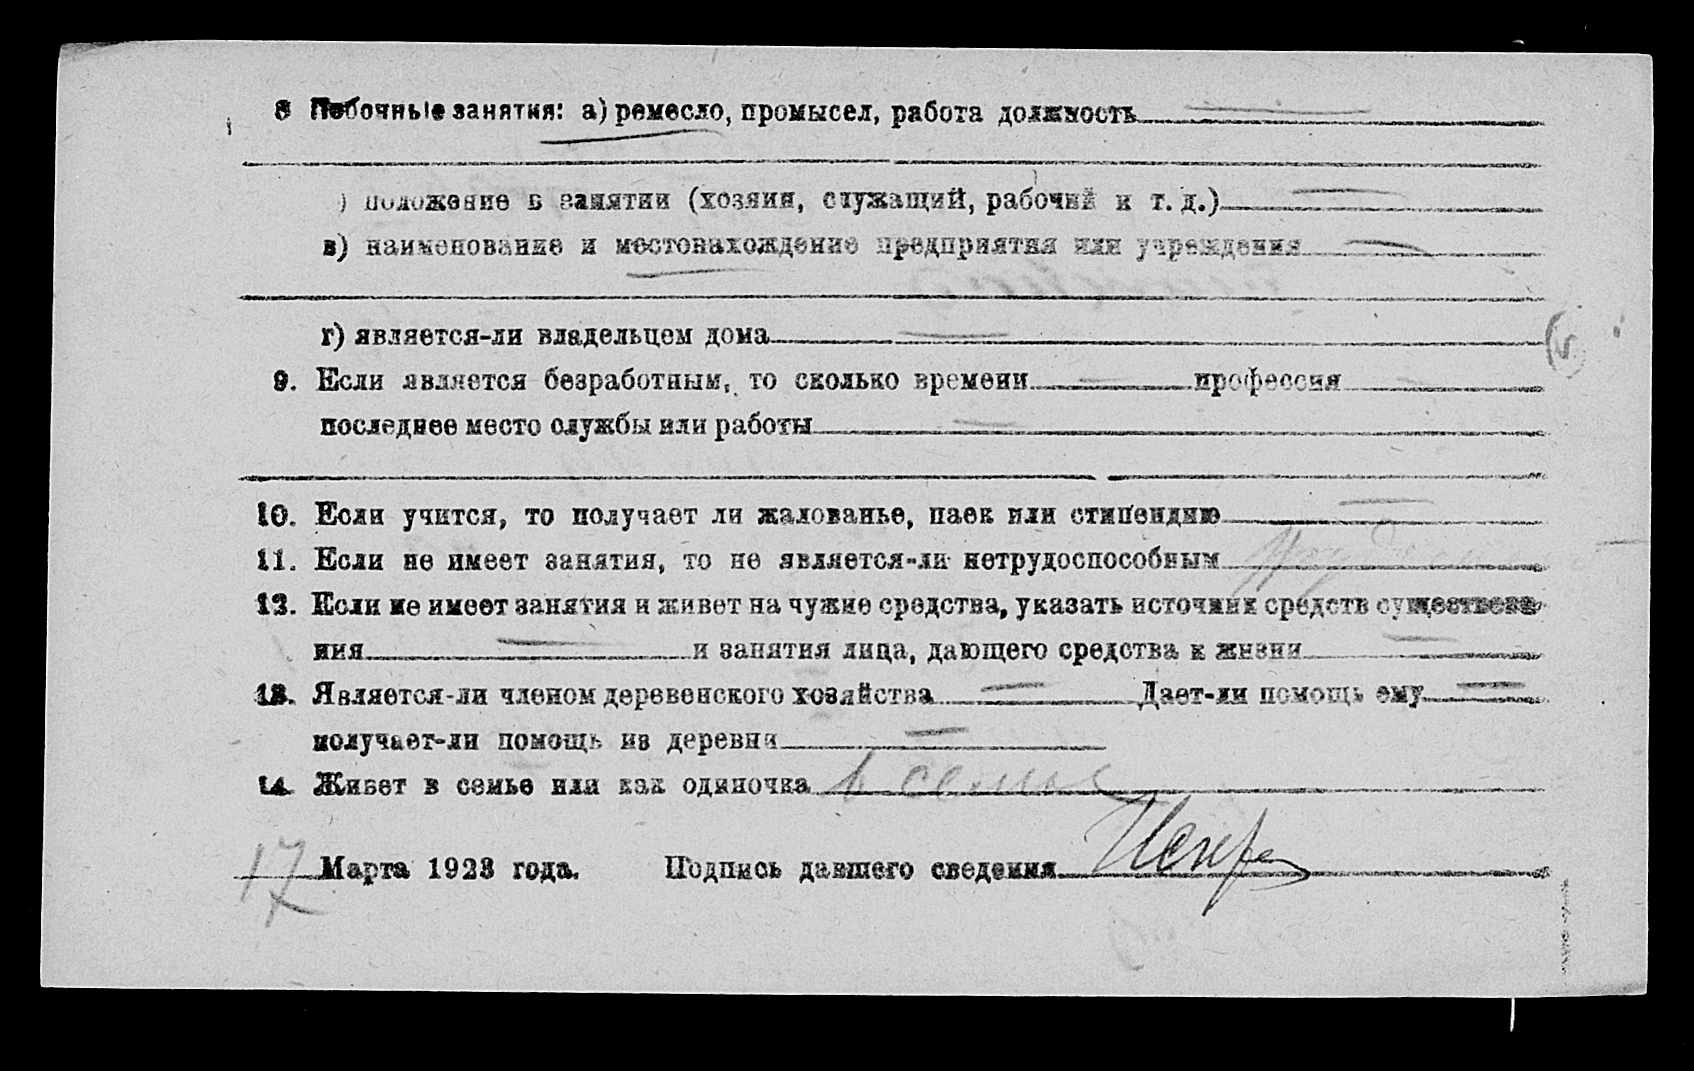 8 Побочные занятия: а) ремесло, промысел, работа должность —
) положение в занятии (хозяин, служащий, рабочий и т. д.) —
в) наименование и местонахождение предприятия или учреждения —
г) является-ли владельцем дома —
9. Если является безработным, то сколько времени — профессия —
последнее место службы или работы —
10. Если учится, то получает ли жалованье, паек или стипендию —
11. Если не имеет занятия, то не является-ли нетрудоспособным
12. Если не имеет занятия и живет на чужие средства, указать источник средств существова-
ния — и занятия лица, дающего средства к жизни —
13. Является-ли членом деревенского хозяйства — Дает-ли помощь ему —
получает-ли помощь из деревни —
14. Живет в семье или как одиночка в семье
17 Марта 1923 года. Подпись давшего сведения